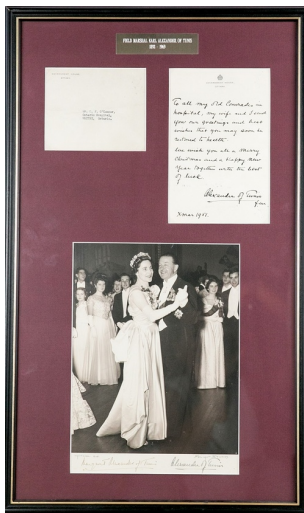 FIELD MARSHAL EARL ALEXANDER OF TUNIS
1891 - 1969
To all my Old Comrades in
hospital, my wife and I send
you our greetings and best
wishes that you may soon be
restored to health.
We wish you all a Merry
Christmas and a Happy New
Year together with the best
of luck
Alexander of Tunis
Xmas
Margaret Alexander of Tunis
Alexander of Tunis